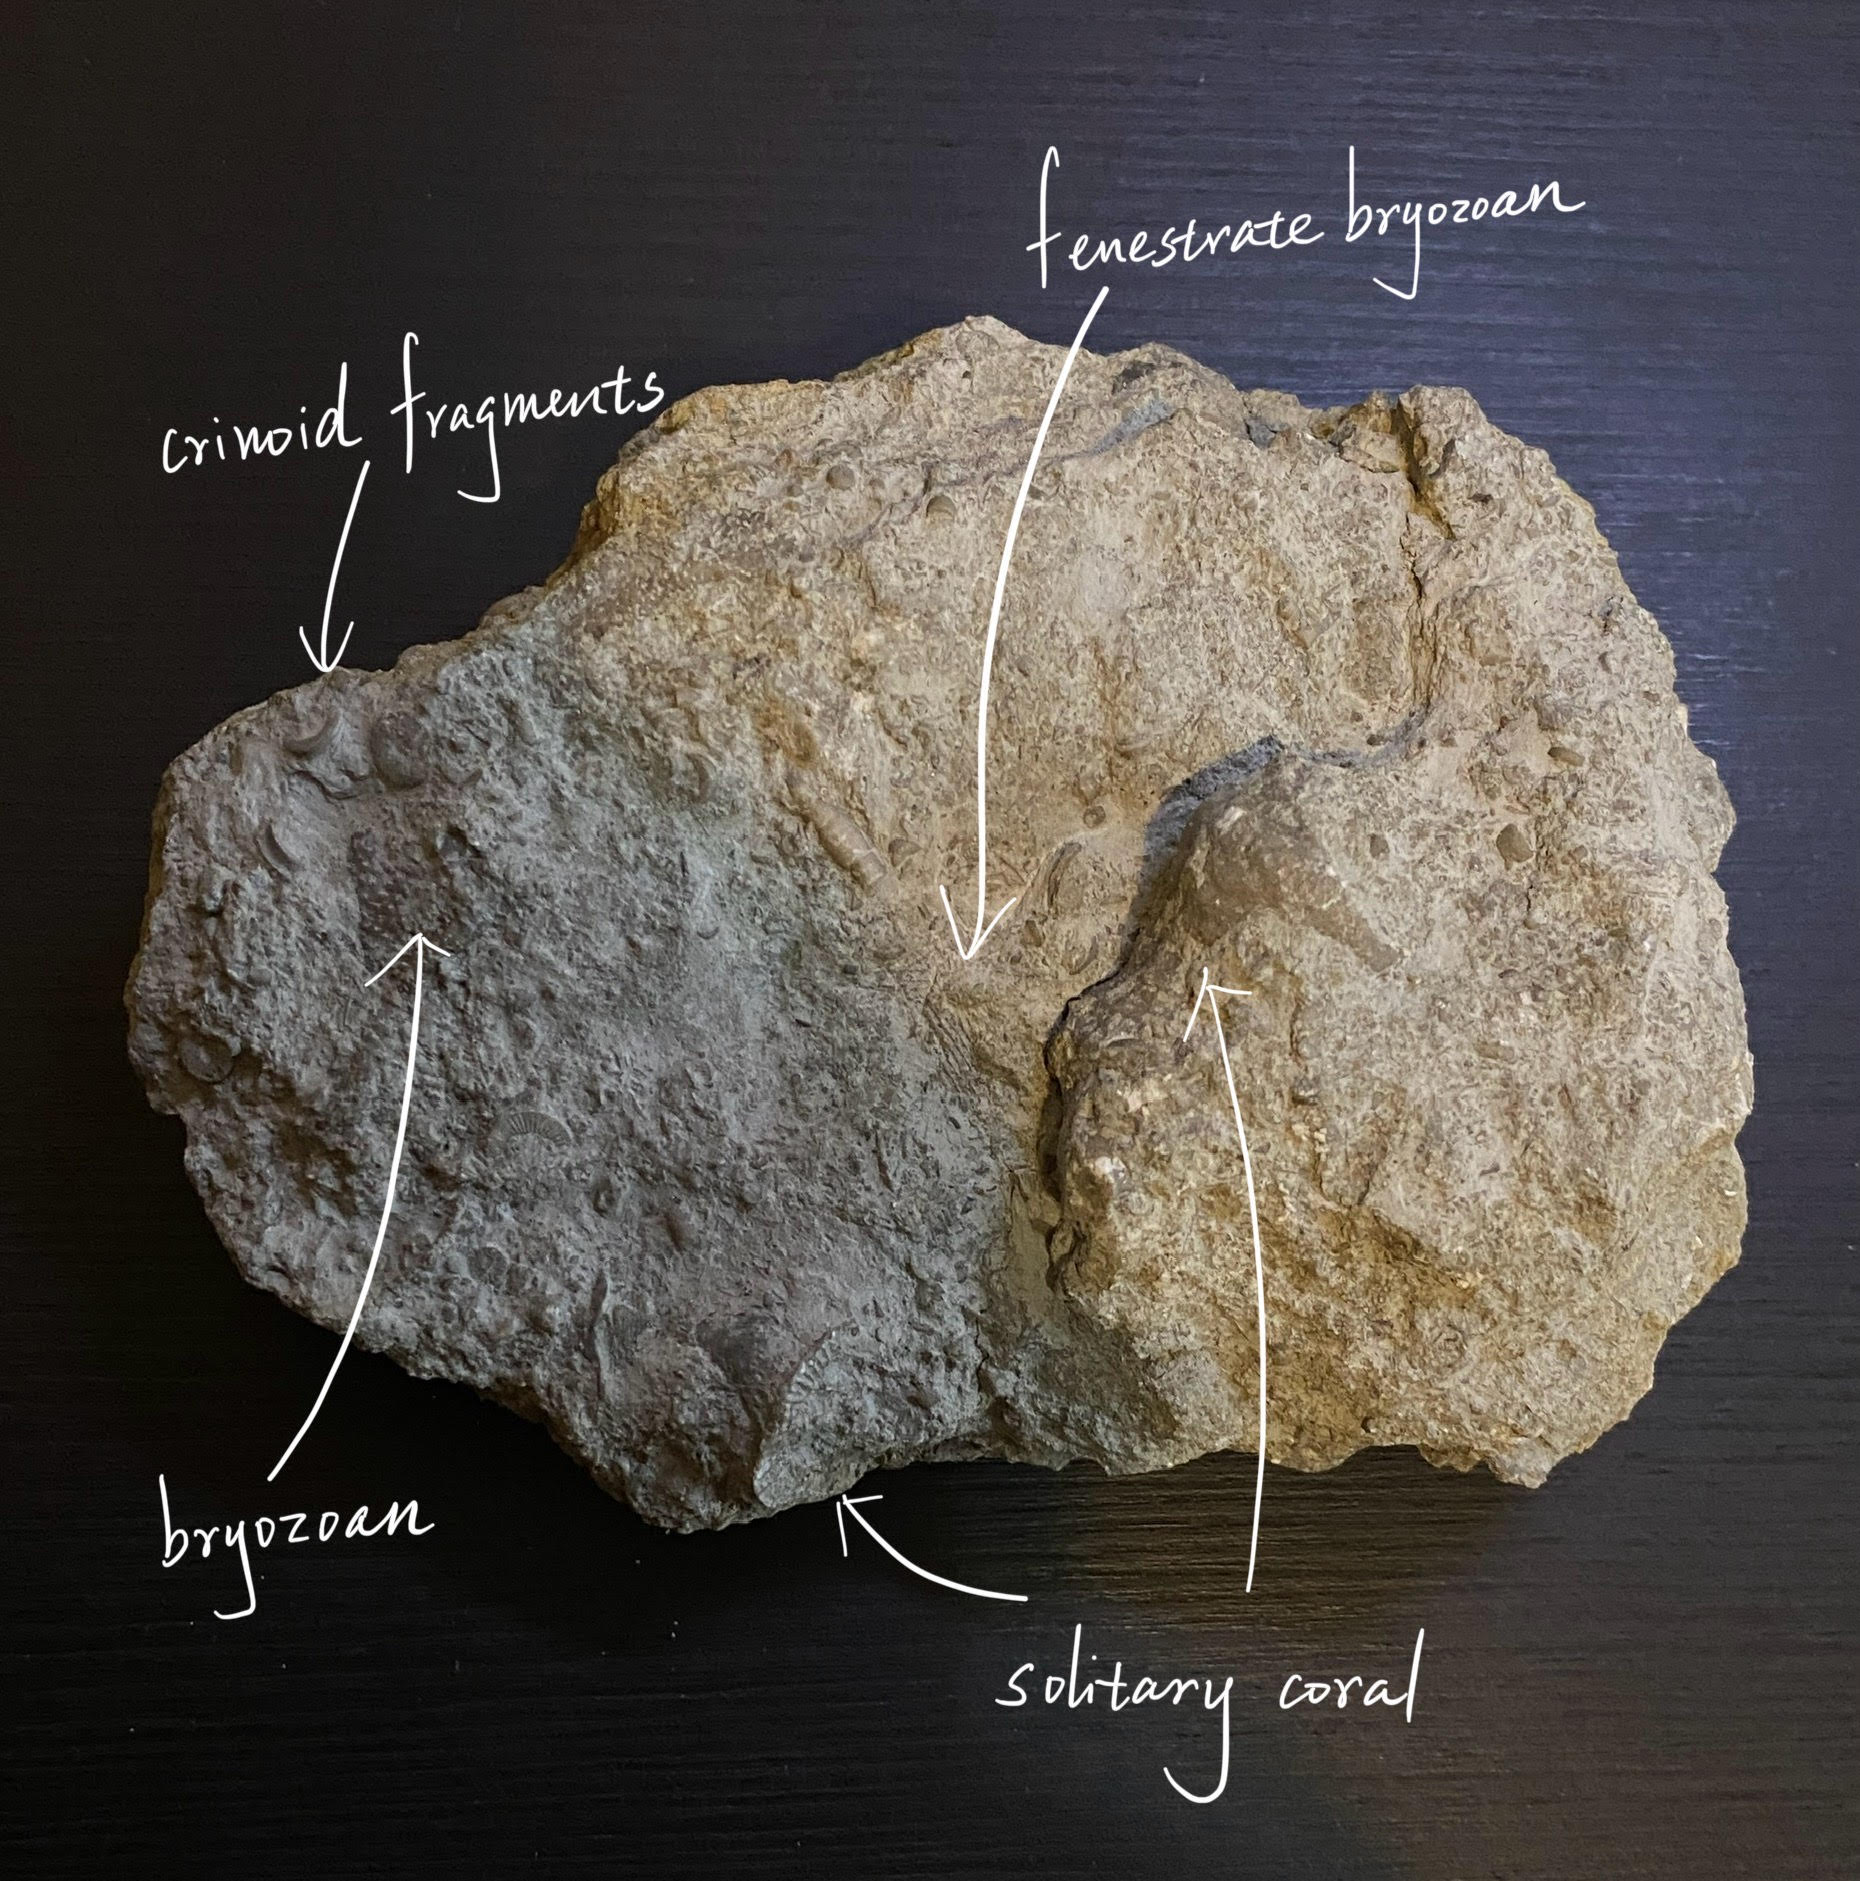 fenestrate bryozoan
crinoid fragments
bryozoan
solitary coral